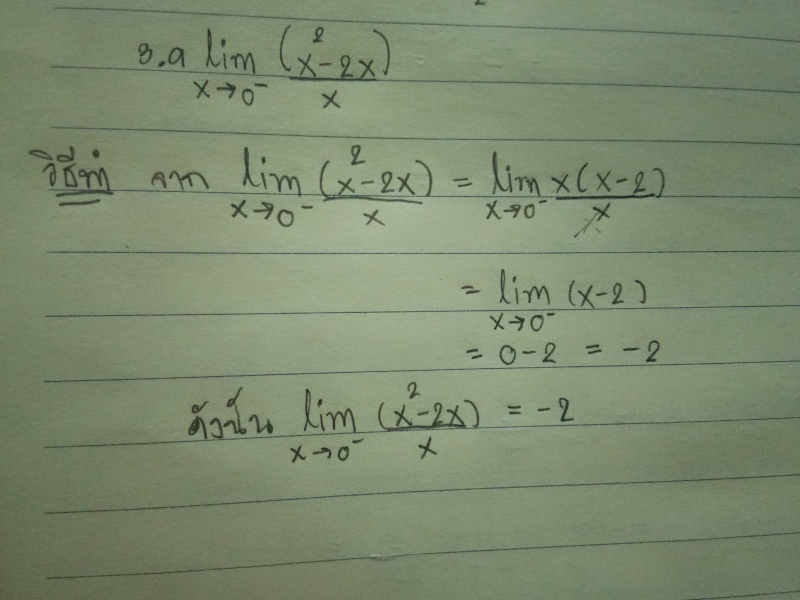 3.a lim x→0⁻ (x²-2x)/x
วิธีทำ จาก lim x→0⁻ (x²-2x)/x = lim x→0⁻ x(x-2)/x
= lim x→0⁻ (x-2)
= 0-2 = -2
ดังนั้น lim x→0⁻ (x²-2x)/x = -2